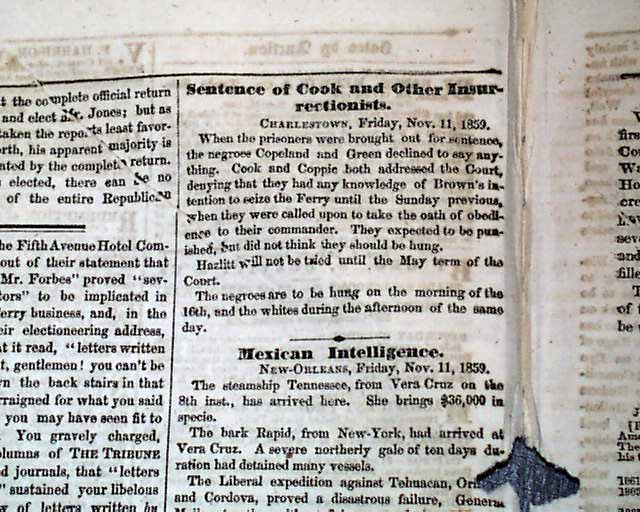 t the complete official return
and elect Mr. Jones; but as
taken the reports least favor-
orth, his apparent majority is
ated by the complete return.
s elected, there can be no
of the entire Republican
he Fifth Avenue Hotel Com-
out of their statement that
Mr. Forbes" proved "sev-
tors" to be implicated in
erry business, and, in the
eir electioneering address,
at it read, "letters written
t, gentlemen! you can't be
wn the back stairs in that
rraigned for what you said
you may have seen fit to
You gravely charged,
olumns of THE TRIBUNE
d journals, that "letters
" sustained your libelous
w of letters written by
Sentence of Cook and Other Insur-
rectionists.
CHARLESTOWN, Friday, Nov. 11, 1859.
When the prisoners were brought out for sentence,
the negroes Copeland and Green declined to say any-
thing. Cook and Coppie both addressed the Court,
denying that they had any knowledge of Brown's in-
tention to seize the Ferry until the Sunday previous,
when they were called upon to take the oath of obedi-
ence to their commander. They expected to be pun-
ished, but did not think they should be hung.
Hazlitt will not be tried until the May term of the
Court.
The negroes are to be hung on the morning of the
16th, and the whites during the afternoon of the same
day.
Mexican Intelligence.
NEW-ORLEANS, Friday, Nov. 11, 1859.
The steamship Tennessee, from Vera Cruz on the
8th inst., has arrived here. She brings $36,000 in
specie.
The bark Rapid, from New-York, had arrived at
Vera Cruz. A severe northerly gale of ten days du-
ration had detained many vessels.
The Liberal expedition against Tehuacan,
and Cordova, proved a disastrous failure, General